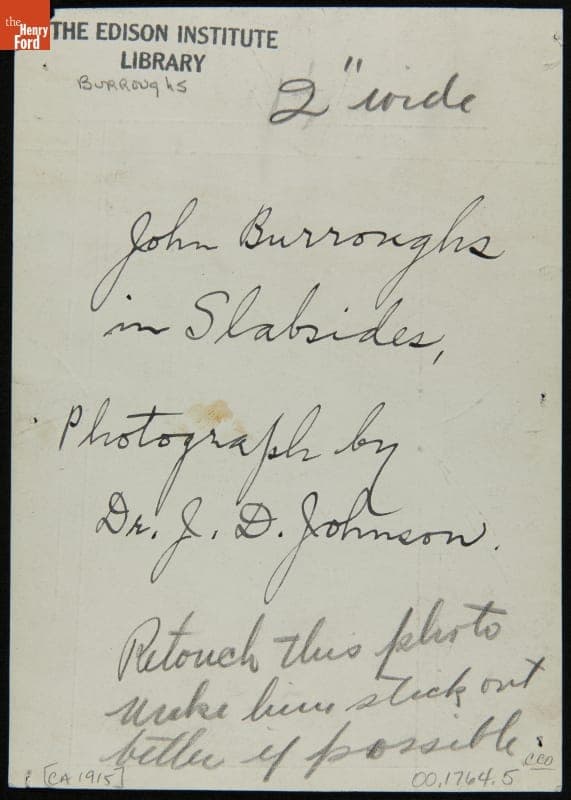 the
Henry
Ford
THE EDISON INSTITUTE
LIBRARY
BURROUGHS
2" wide
John Burroughs
in Slabsides,
Photograph by
Dr. J. D. Johnson.
Retouch this photo
make him stick out
better if possible.
CCO
[CA 1915]
00.1764.5